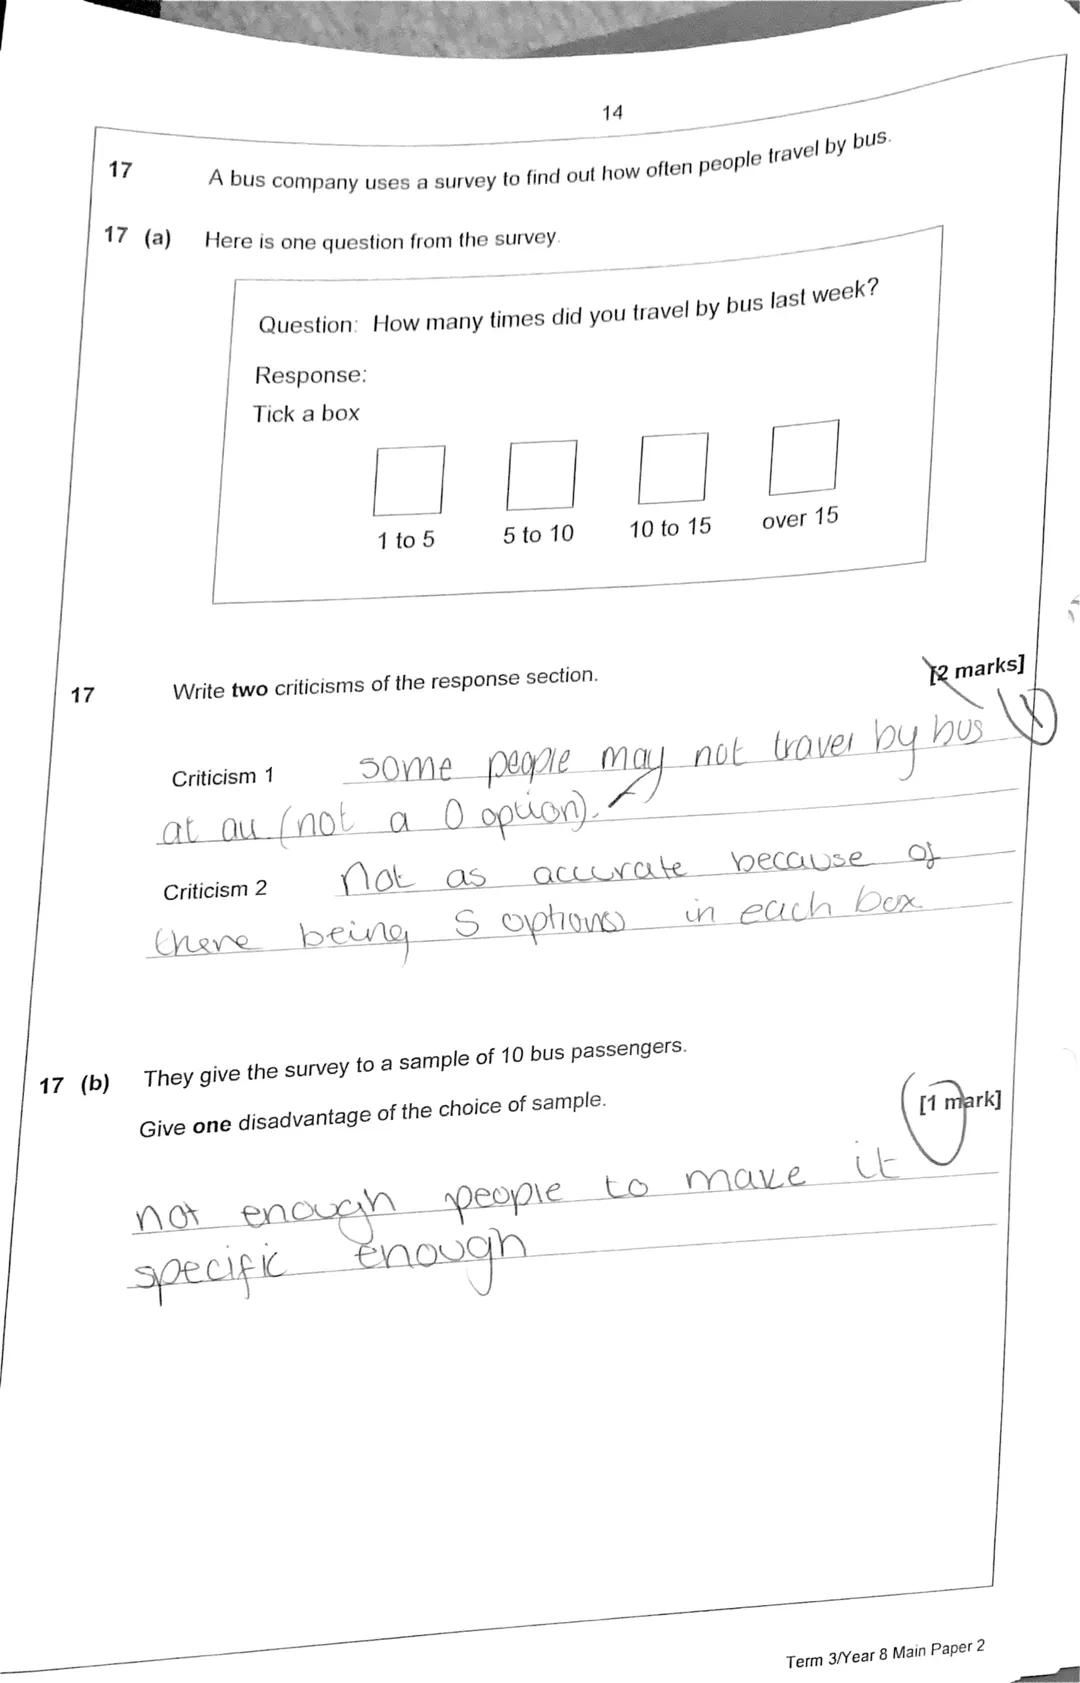 14
17 A bus company uses a survey to find out how often people travel by bus.
17 (a) Here is one question from the survey.
Question: How many times did you travel by bus last week?
Response:
Tick a box
1 to 5 5 to 10 10 to 15 over 15
17 Write two criticisms of the response section.
[2 marks]
Criticism 1 some people may not travel by bus
at all (not a 0 option).
Criticism 2 not as accurate because of
there being 5 options in each box
17 (b) They give the survey to a sample of 10 bus passengers.
Give one disadvantage of the choice of sample.
[1 mark]
not enough people to make it
specific enough
Term 3/Year 8 Main Paper 2